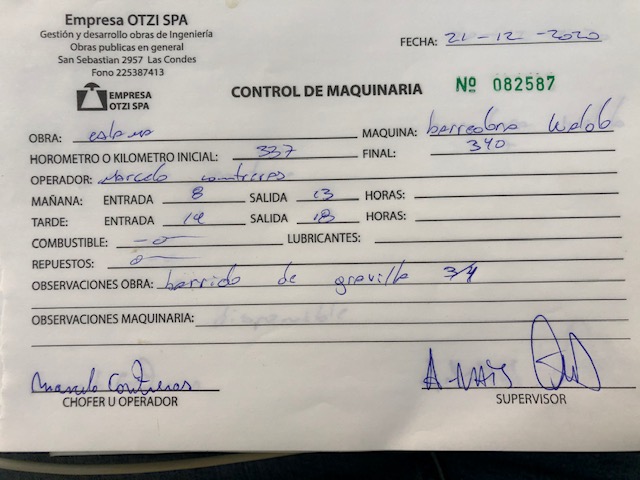 Empresa OTZI SPA
Gestión y desarrollo obras de Ingeniería
Obras publicas en general
San Sebastian 2957 Las Condes
Fono 225387413
FECHA: 21-12-2020
EMPRESA
OTZI SPA
CONTROL DE MAQUINARIA
Nº 082587
OBRA: MAQUINA: barredora
HOROMETRO O KILOMETRO INICIAL: 337 FINAL: 340
OPERADOR: Marcelo Contreras
MAÑANA: ENTRADA 8 SALIDA 13 HORAS:
TARDE: ENTRADA 14 SALIDA 18 HORAS:
COMBUSTIBLE: -0- LUBRICANTES:
REPUESTOS: 0-
OBSERVACIONES OBRA: barrido de gravilla 3/4
OBSERVACIONES MAQUINARIA:
Marcelo Contreras
CHOFER U OPERADOR
SUPERVISOR